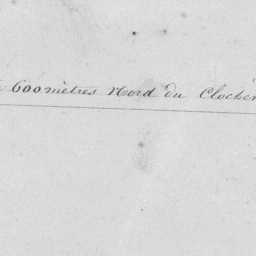 600 mètres Nord du Clocher